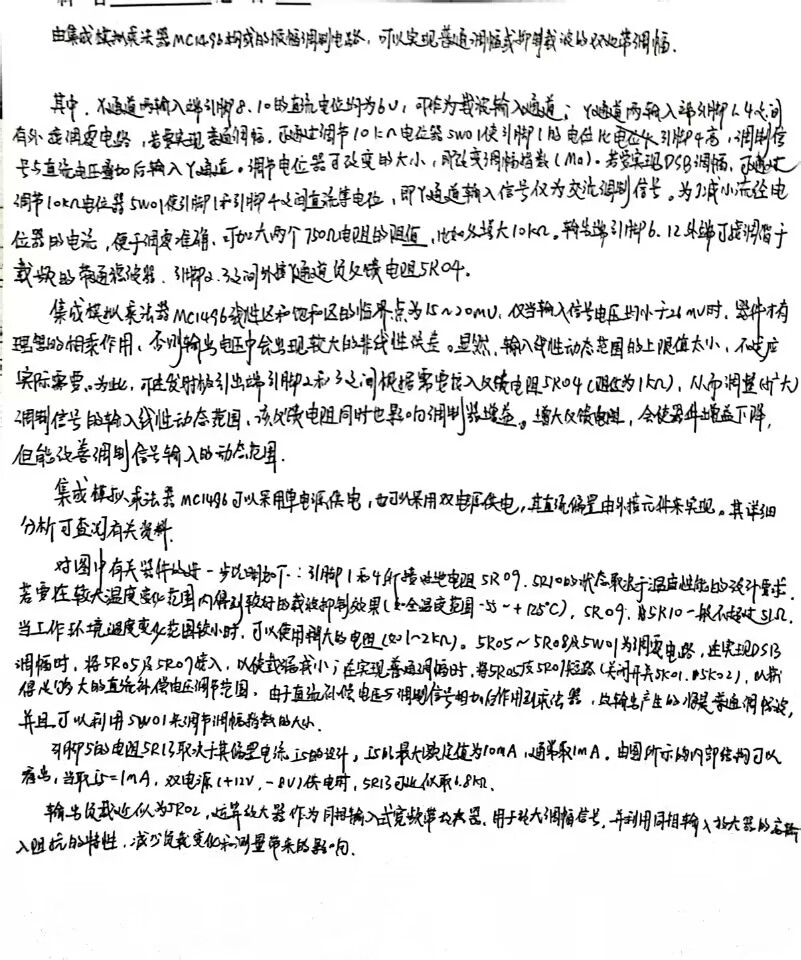 由集成模拟乘法器MC1496构成的振幅调制电路,可以实现普通调幅或抑制载波的双边带调幅.
其中.X通道两输入端引脚8.10的直流电位均为6V,可作为载波输入通道;Y通道两输入端引脚1.4之间
有外接调零电路,若要实现普通调幅,可通过调节10kΩ电位器5W01使引脚1的电位比引脚4高,调制信
号与直流电压叠加后输入Y通道。调节电位器可改变的大小,即改变调幅指数(Ma).若要实现DSB调幅,可通过
调节10kΩ电位器5W01使引脚1和引脚4之间直流等电位,即Y通道输入信号仅为交流调制信号。为了减小流经电
位器的电流,便于调零准确,可加大两个750Ω电阻的阻值,比如各增大10kΩ。输出端引脚6.12外端可接调谐于
载频的带通滤波器.引脚2.3之间外接Y通道负反馈电阻5R04.
集成模拟乘法器MC1496线性区和饱和区的临界点为15~20mV,仅当输入信号电压均小于26mV时,器件才有
理想的相乘作用,否则输出电压中会出现较大的非线性误差。显然,输入线性动态范围的上限值太小,不适应
实际需要。为此,可在发射极引出端引脚2和3之间根据需要接入反馈电阻5R04(阻值为1kΩ),从而调整(扩大)
调制信号的输入线性动态范围,该反馈电阻同时也影响调制器增益。增大反馈电阻,会使器件增益下降,
但能改善调制信号输入的动态范围.
集成模拟乘法器MC1496可以采用单电源供电,也可以采用双电源供电,其直流偏置由外接元件来实现。其详细
分析可查阅有关资料.
对图中有关器件的进一步说明如下:引脚1和4所接对地电阻5R09.5R10的状态取决于温度性能的设计要求.
若要在较大温度变化范围内得到较好的载波抑制效果(如全温度范围-55~+125℃),5R09.和5R10一般不超过51Ω.
当工作环境温度变化范围较小时,可以使用稍大的电阻(如1~2kΩ)。5R05~5R08及5W01为调零电路,在实现DSB
调幅时,将5R05及5R07接入,以使载漏减小;在实现普通调幅时,将5R05及5R07短路(关闭开关5K01.和5K02),以获
得足够大的直流补偿电压调节范围,由于直流补偿电压与调制信号相加后作用到乘法器,故输出产生的将是普通调幅波,
并且可以利用5W01来调节调幅指数的大小.
引脚5的电阻5R13取决于其偏置电流i5的设计,i5的最大额定值为10mA,通常取1mA。由图所示的内部结构可以
看出,当取i5=1mA,双电源(+12V,-8V)供电时,5R13可近似取6.8kΩ.
输出负载近似为5R02,运算放大器作为同相输入式宽频带放大器.用于放大调幅信号,并利用同相输入放大器的高输
入阻抗的特性,减少负载变化和测量带来的影响.